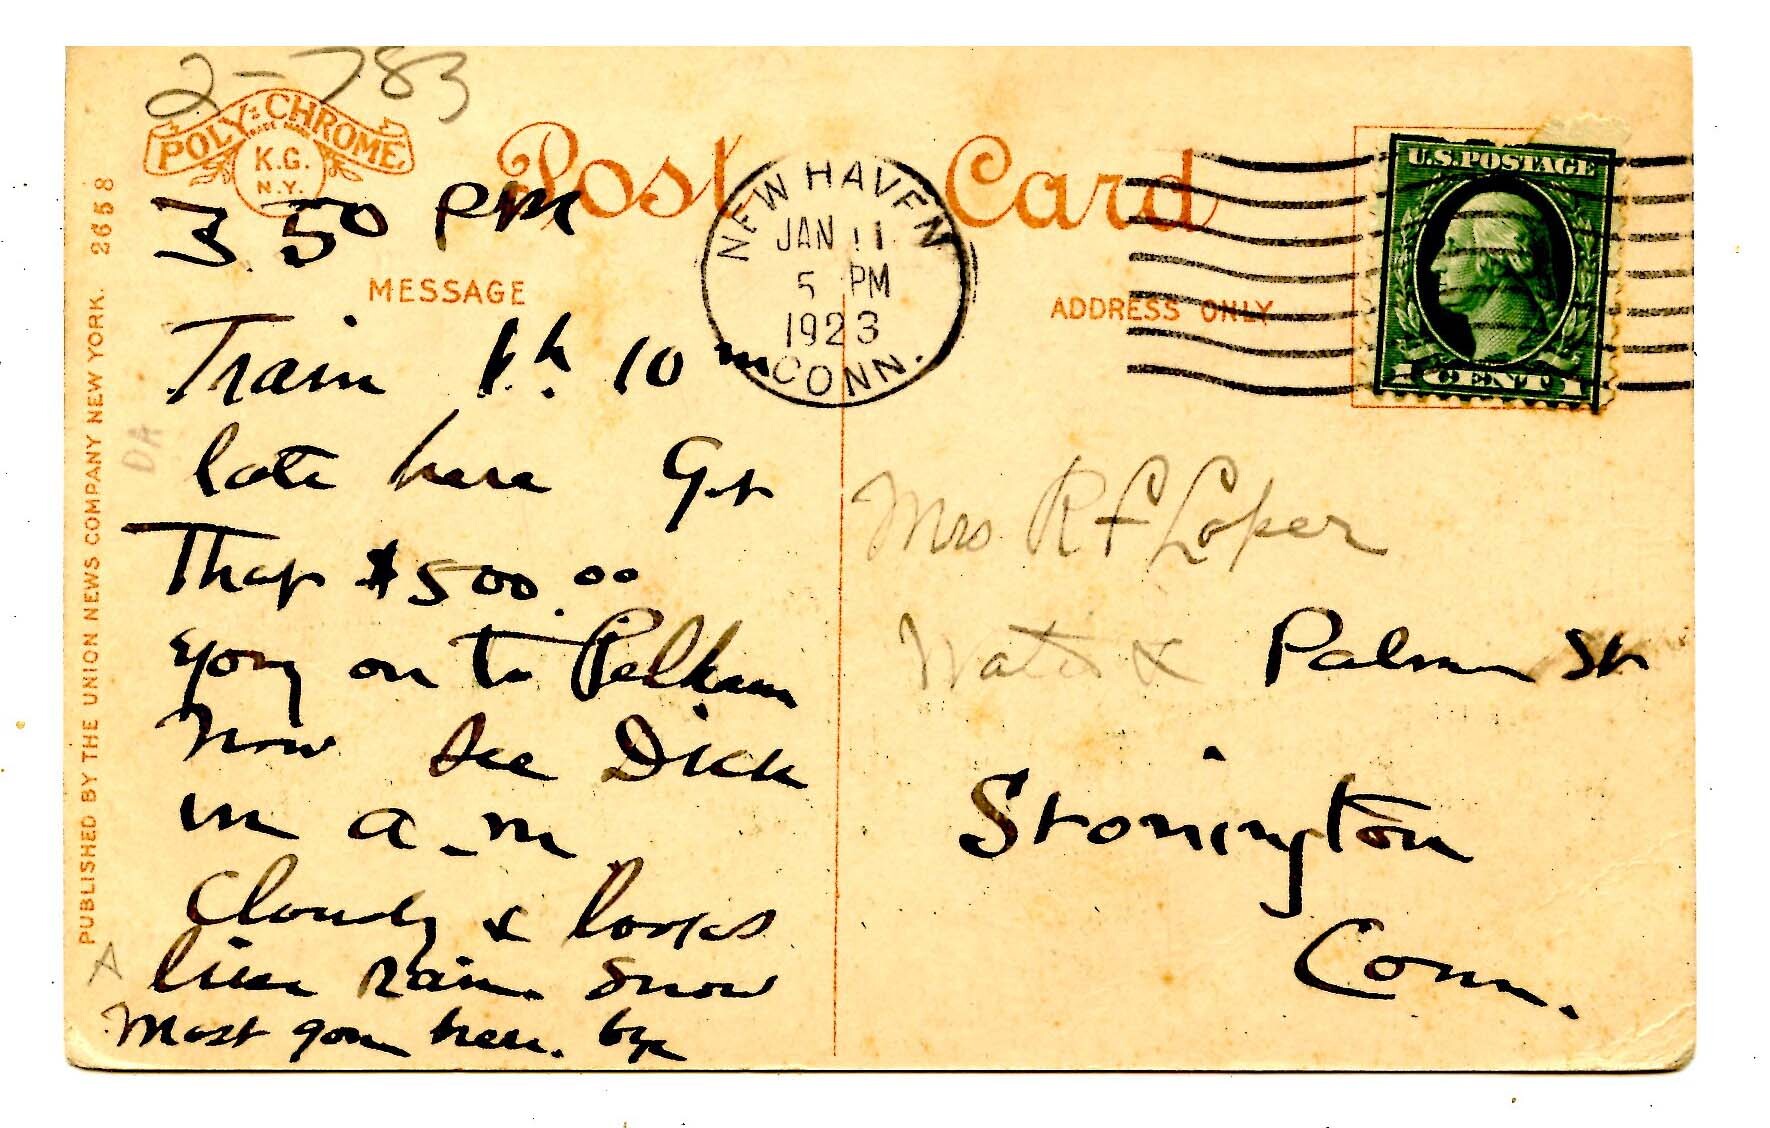 2-783
POLY-CHROME
TRADE MARK
K.G.
N.Y.
Post Card
NEW HAVEN
JAN 11
5 PM
1923
CONN.
U.S. POSTAGE
1 CENT 1
MESSAGE
ADDRESS ONLY
PUBLISHED BY THE UNION NEWS COMPANY NEW YORK. 2658
DA
A
3.50 PM
Train 1 h. 10 m
late here Got
That $500.00
going on to Pelham
now see Dick
in a-m
Cloudy & looks
like Rain. Snow
Most gone here. bye
Mrs R F Loper
Water & Palmer St
Stonington
Conn.